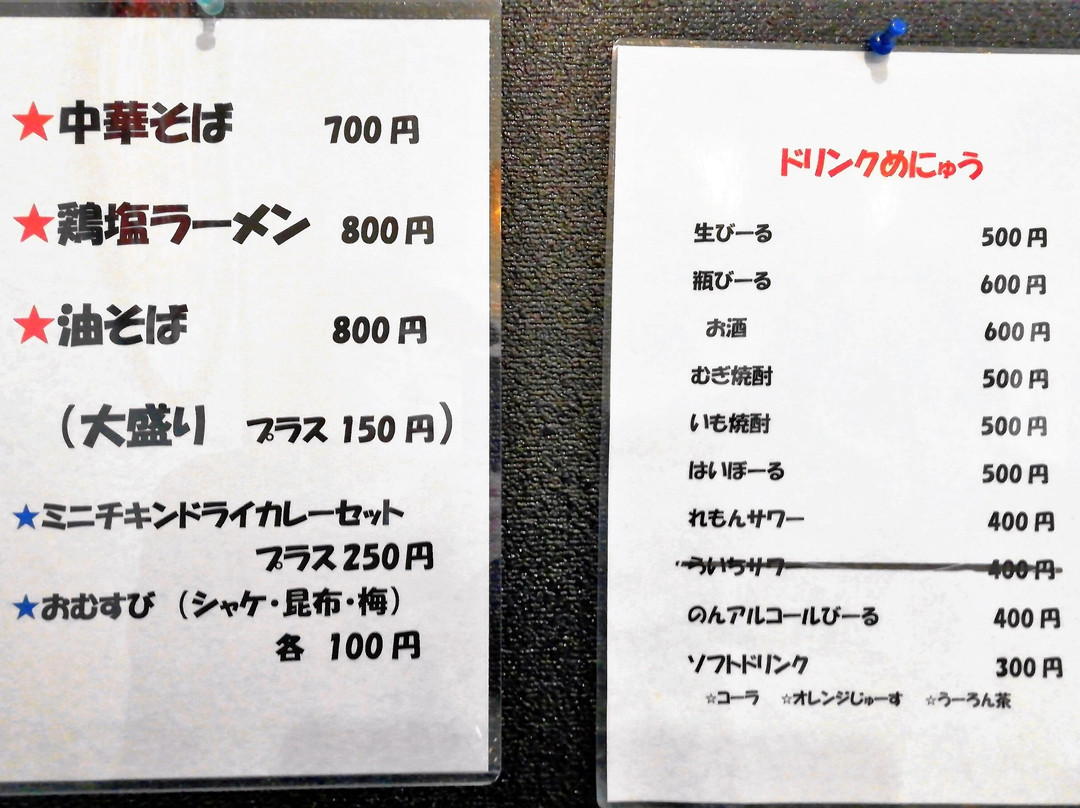 ★中華そば 700円
★鶏塩ラーメン 800円
★油そば 800円
（大盛り プラス150円）
★ミニチキンドライカレーセット
プラス250円
★おむすび （シャケ・昆布・梅）
各 100円
ドリンクめにゅう
生びーる 500円
瓶びーる 600円
お酒 600円
むぎ焼酎 500円
いも焼酎 500円
はいぼーる 500円
れもんサワー 400円
ういちサワー 400円
のんアルコールびーる 400円
ソフトドリンク 300円
☆コーラ ☆オレンジじゅーす ☆うーろん茶